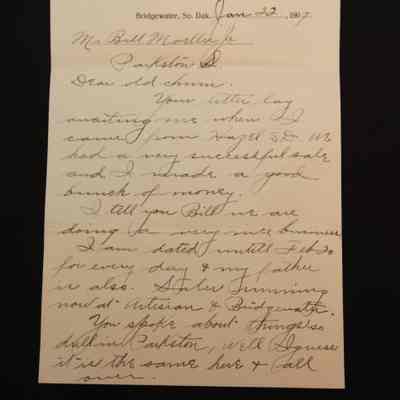 Bridgewater, So. Dak. Jan 22, 1907.
Mr Bill Jr
Parkston S.D.
Dear old chum.
Your letter lay
awaiting me when I
came from Hazel S.D. We
had a very successful sale
and I made a good
bunch of money.
I tell you Bill we are
doing a very nice business
I am dated untill Feb 20
for every day & my father
is also. Sales running
now at Artesian & Bridgewater.
You spoke about things so
dull in Parkston, well I guess
it is the same here & all
over.